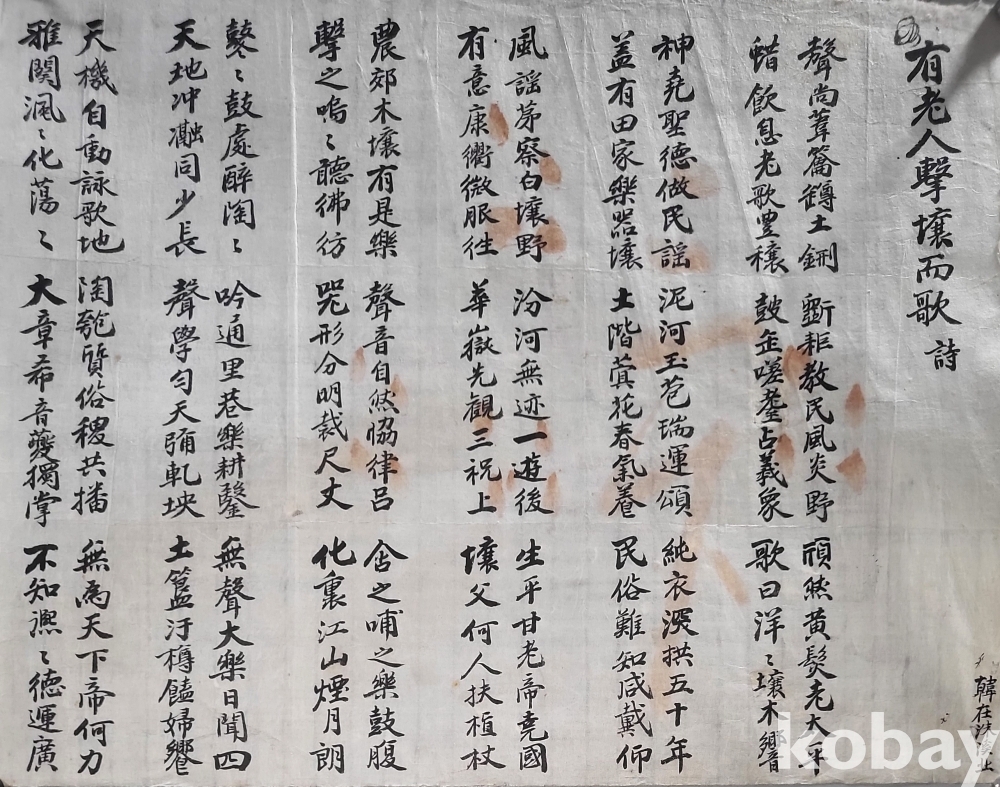 有老人擊壤而歌 詩
聲尚葦籥鐏土鉶 斲耜教民風炎野 頎然黃髮老大平
蜡飮息老歌豊穰 鼓缶嗟耋占羲象 歌曰洋〻壤木響
神堯聖德做民謠 泥河玉苞瑞運頌 純衣深拱五十年
盖有田家樂器壤 土階蓂花春氣養 民俗難知咸戴仰
風謠茅察白壤野 汾河無迹一遊後 生平甘老帝堯國
有意康衢微服徃 華嶽先觀三祝上 壤父何人扶植杖
農郊木壤有是樂 聲音自然恊律呂 含之哺之樂鼓腹
擊之嗚〻聽彿彷 咒形分明裁尺丈 化裏江山煙月朗
鼕〻鼓處醉陶〻 吟通里巷樂耕鑿 無聲大樂日聞四
天地冲瀜同少長 聲學勻天彌軋坱 土簋汙樽饁婦饗
天機自動詠歌地 陶匏質俗稷共播 無爲天下帝何力
雅関渢〻化蕩〻 大章希音夔獨掌 不知凞〻德運廣
韓在洙
kobay